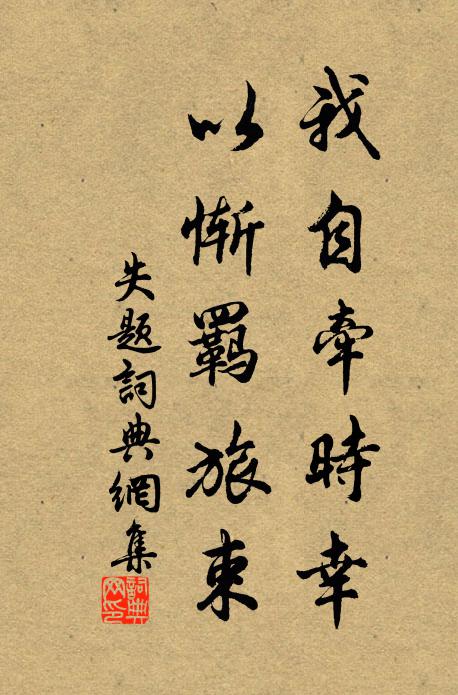 我自牽時幸
以慚羈旅束
失題詞典網集
詞典
网印